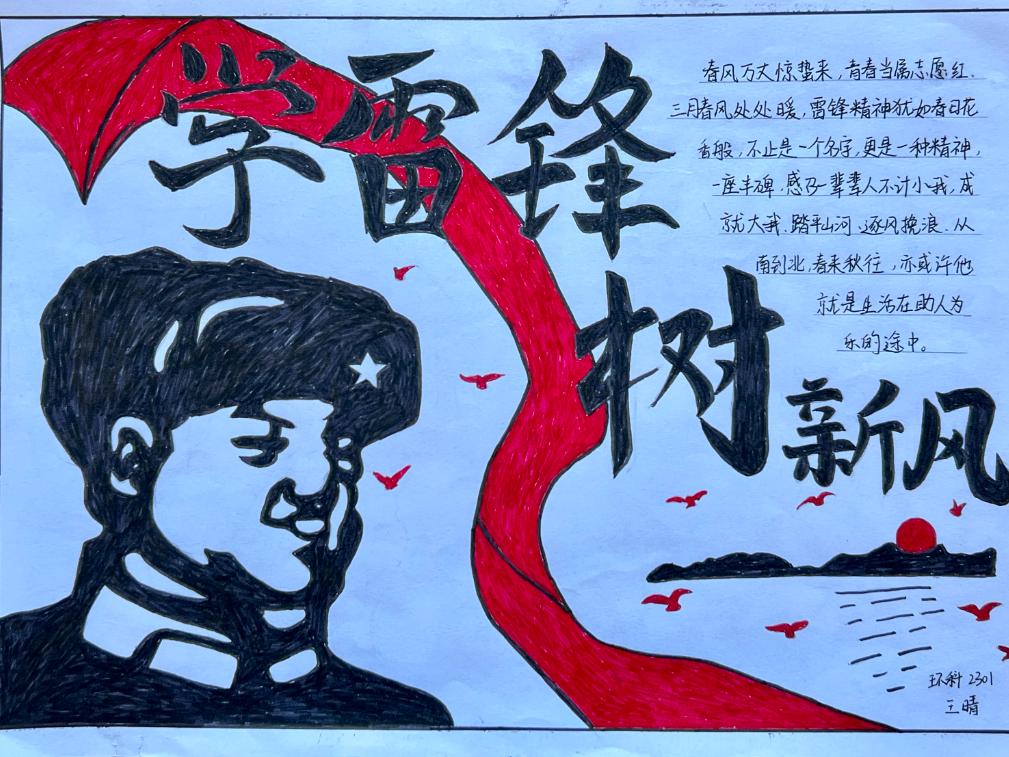 学雷锋
树新风
春风万丈惊蛰来,青春当属志愿红.
三月春风处处暖,雷锋精神犹如春日花
香般,不止是一个名字,更是一种精神,
一座丰碑,感召一辈辈人不计小我,成
就大我.踏平山河.逐风挽浪.从
南到北,春来秋往,亦或许他
就是生活在助人为
乐的途中。
环科2301
王晴